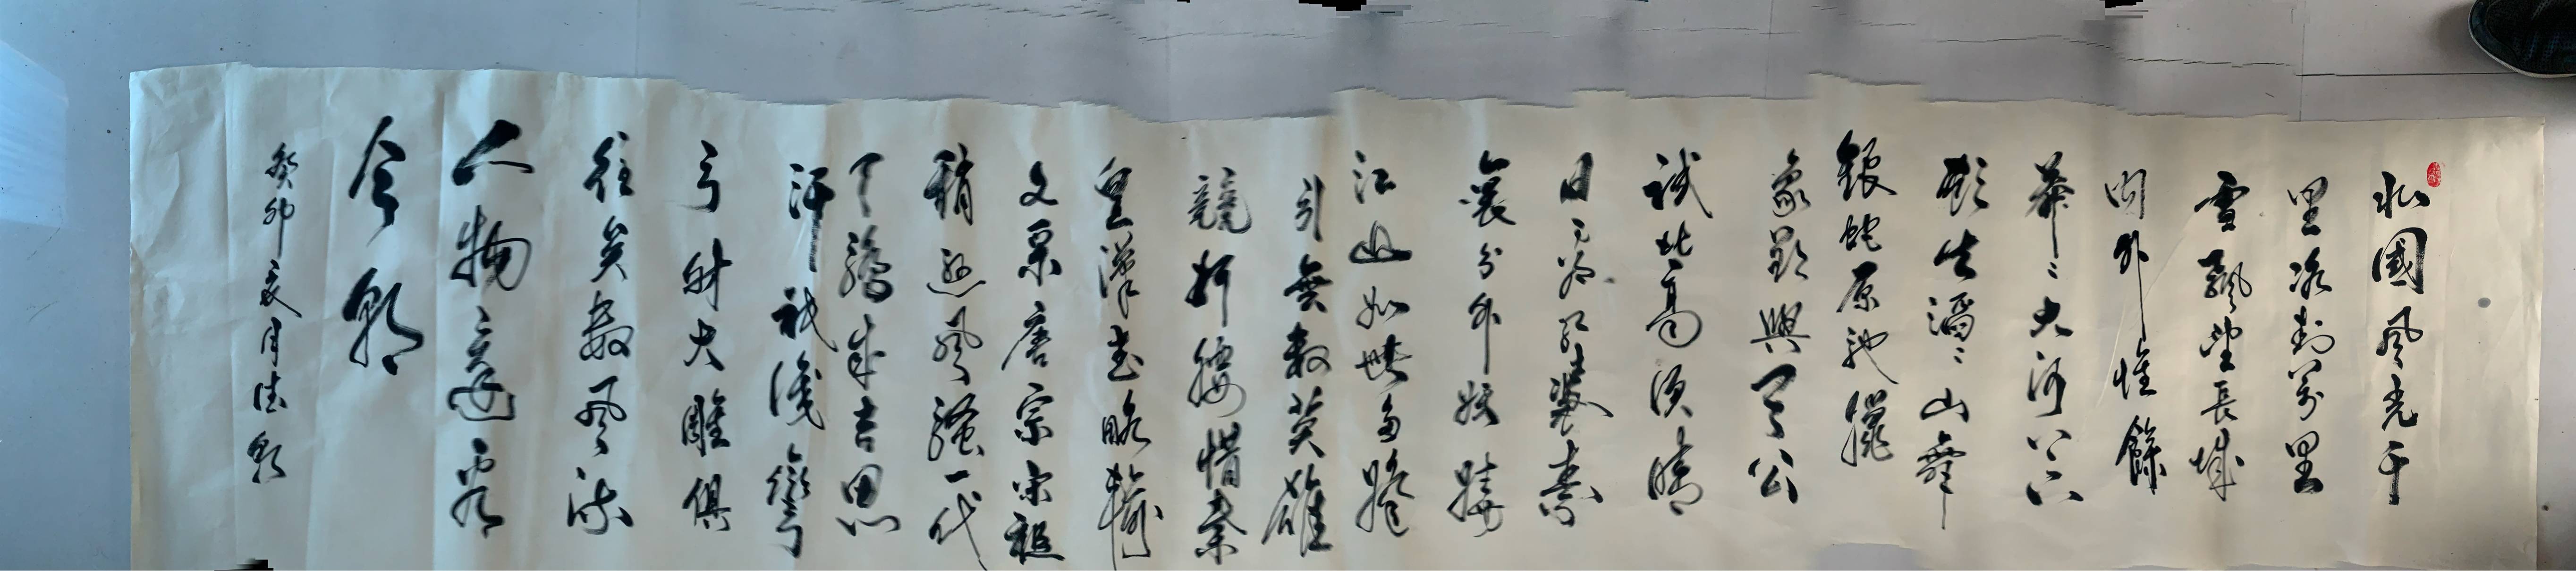 北國風光千
里冰封萬里
雪飄望長城
内外惟餘
莽〻大河上下
頓失滔〻山舞
銀蛇原馳蠟
象欲與天公
試比高須晴
日看紅裝素
裹分外妖嬈
江山如此多嬌
引無數英雄
競折腰惜秦
皇漢武略輸
文采唐宗宋祖
稍遜風騷一代
天驕成吉思
汗祇識彎
弓射大雕俱
往矣數風流
人物還看
今朝
癸卯夏月德